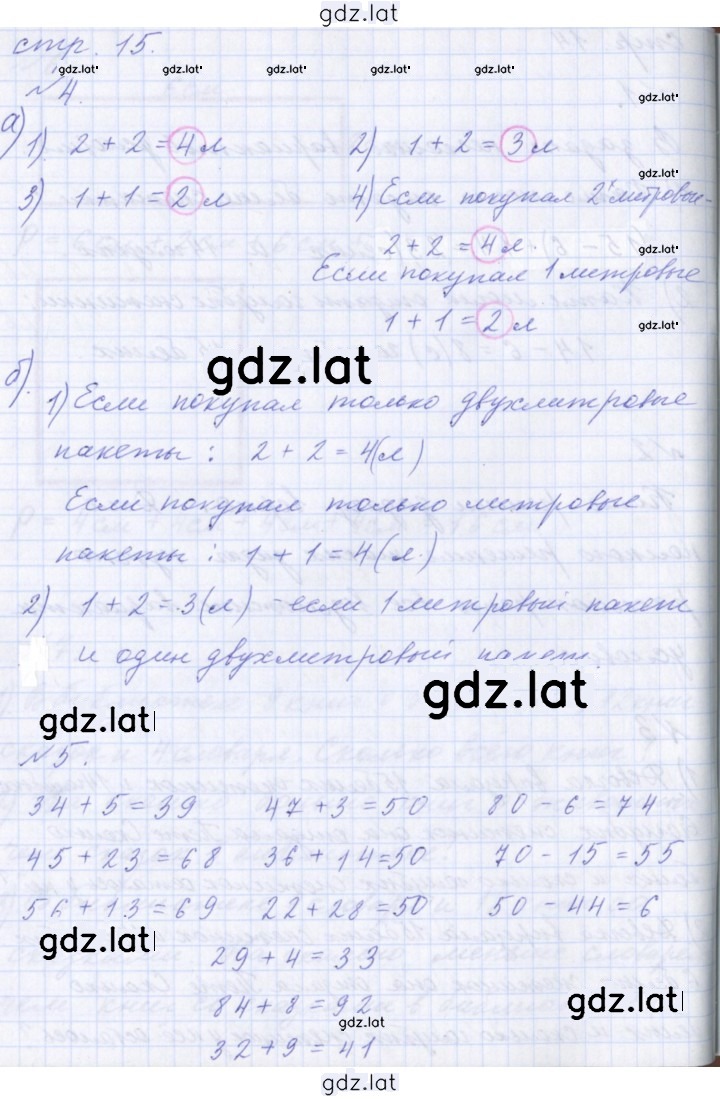 gdz.lat
стр. 15.
gdz.lat gdz.lat gdz.lat gdz.lat gdz.lat
№4. gdz.lat
а)
1) 2 + 2 = 4 л 2) 1 + 2 = 3 л
gdz.lat
3) 1 + 1 = 2 л 4) Если покупал 2 метровые-
2 + 2 = 4 л. gdz.lat
Если покупал 1 метровые
1 + 1 = 2 л gdz.lat
gdz.lat
б).
1) Если покупал только двухлитровые
пакеты : 2 + 2 = 4(л)
Если покупал только метровые
пакеты : 1 + 1 = 4(л.)
2) 1 + 2 = 3(л) - если 1 метровый пакет
и один двухметровый пакет.
gdz.lat
gdz.lat
№5.
34 + 5 = 39 47 + 3 = 50 80 - 6 = 74
45 + 23 = 68 36 + 14 = 50 70 - 15 = 55
56 + 13 = 69 22 + 28 = 50 50 - 44 = 6
gdz.lat
29 + 4 = 33
84 + 8 = 92
gdz.lat
gdz.lat
32 + 9 = 41
gdz.lat